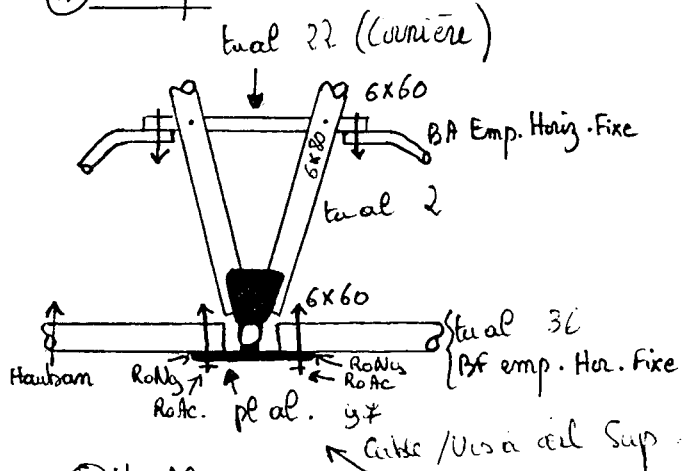 tual 22 (Cornière)
6x60
BA Emp. Horiz. Fixe
6x80
tual 2
6x60
tual 36
BF emp. Hor. Fixe
Hauban
RoNy
RoNy
RoAc
RoAc.
pl al.
Cable / Vis à œil Sup.